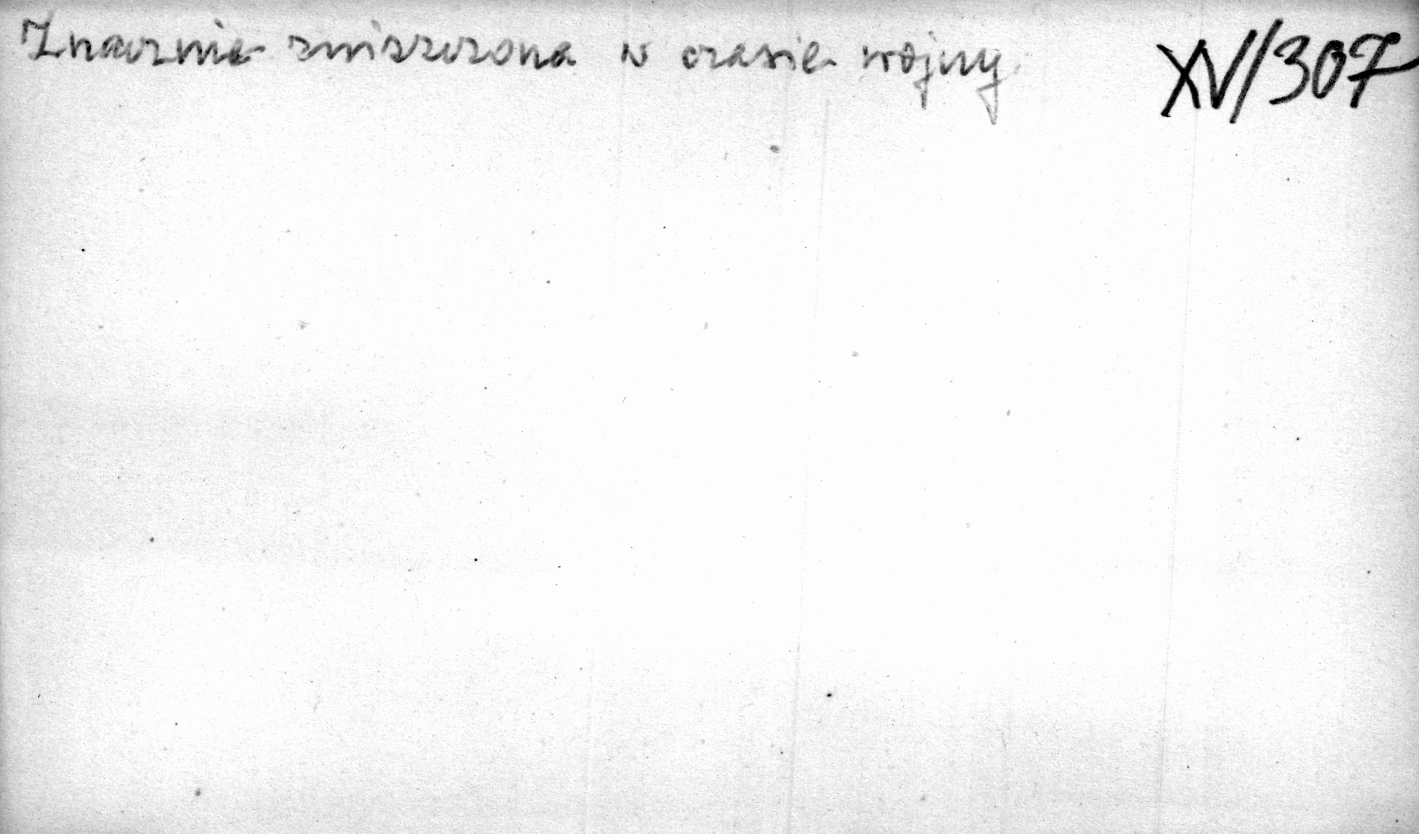 Znacznie zniszczona w czasie wojny
XV/307